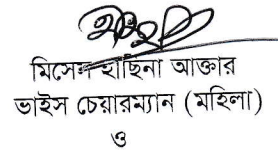 মিসেস হাছিনা আক্তার
ভাইস চেয়ারম্যান (মহিলা)
ও